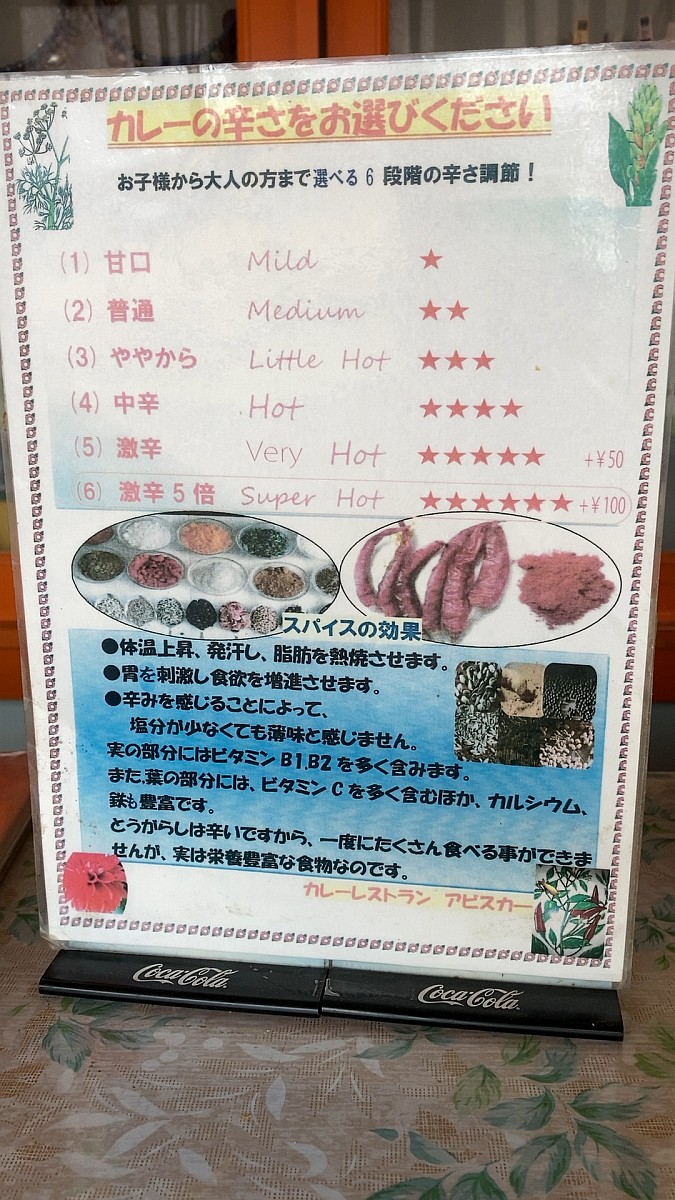 カレーの辛さをお選びください
お子様から大人の方まで選べる6 段階の辛さ調節！
(1) 甘口 Mild ★
(2) 普通 Medium ★★
(3) ややから Little Hot ★★★
(4) 中辛 Hot ★★★★
(5) 激辛 Very Hot ★★★★★ +¥50
(6) 激辛5倍 Super Hot ★★★★★★ +¥100
スパイスの効果
●体温上昇、発汗し、脂肪を熱焼させます。
●胃を刺激し食欲を増進させます。
●辛みを感じることによって、
塩分が少なくても薄味と感じません。
実の部分にはビタミン B1,B2 を多く含みます。
また,葉の部分には、ビタミン C を多く含むほか、カルシウム、
鉄も豊富です。
とうがらしは辛いですから、一度にたくさん食べる事ができま
せんが、実は栄養豊富な食物なのです。
カレーレストラン アビスカー
Coca-Cola
Coca-Cola